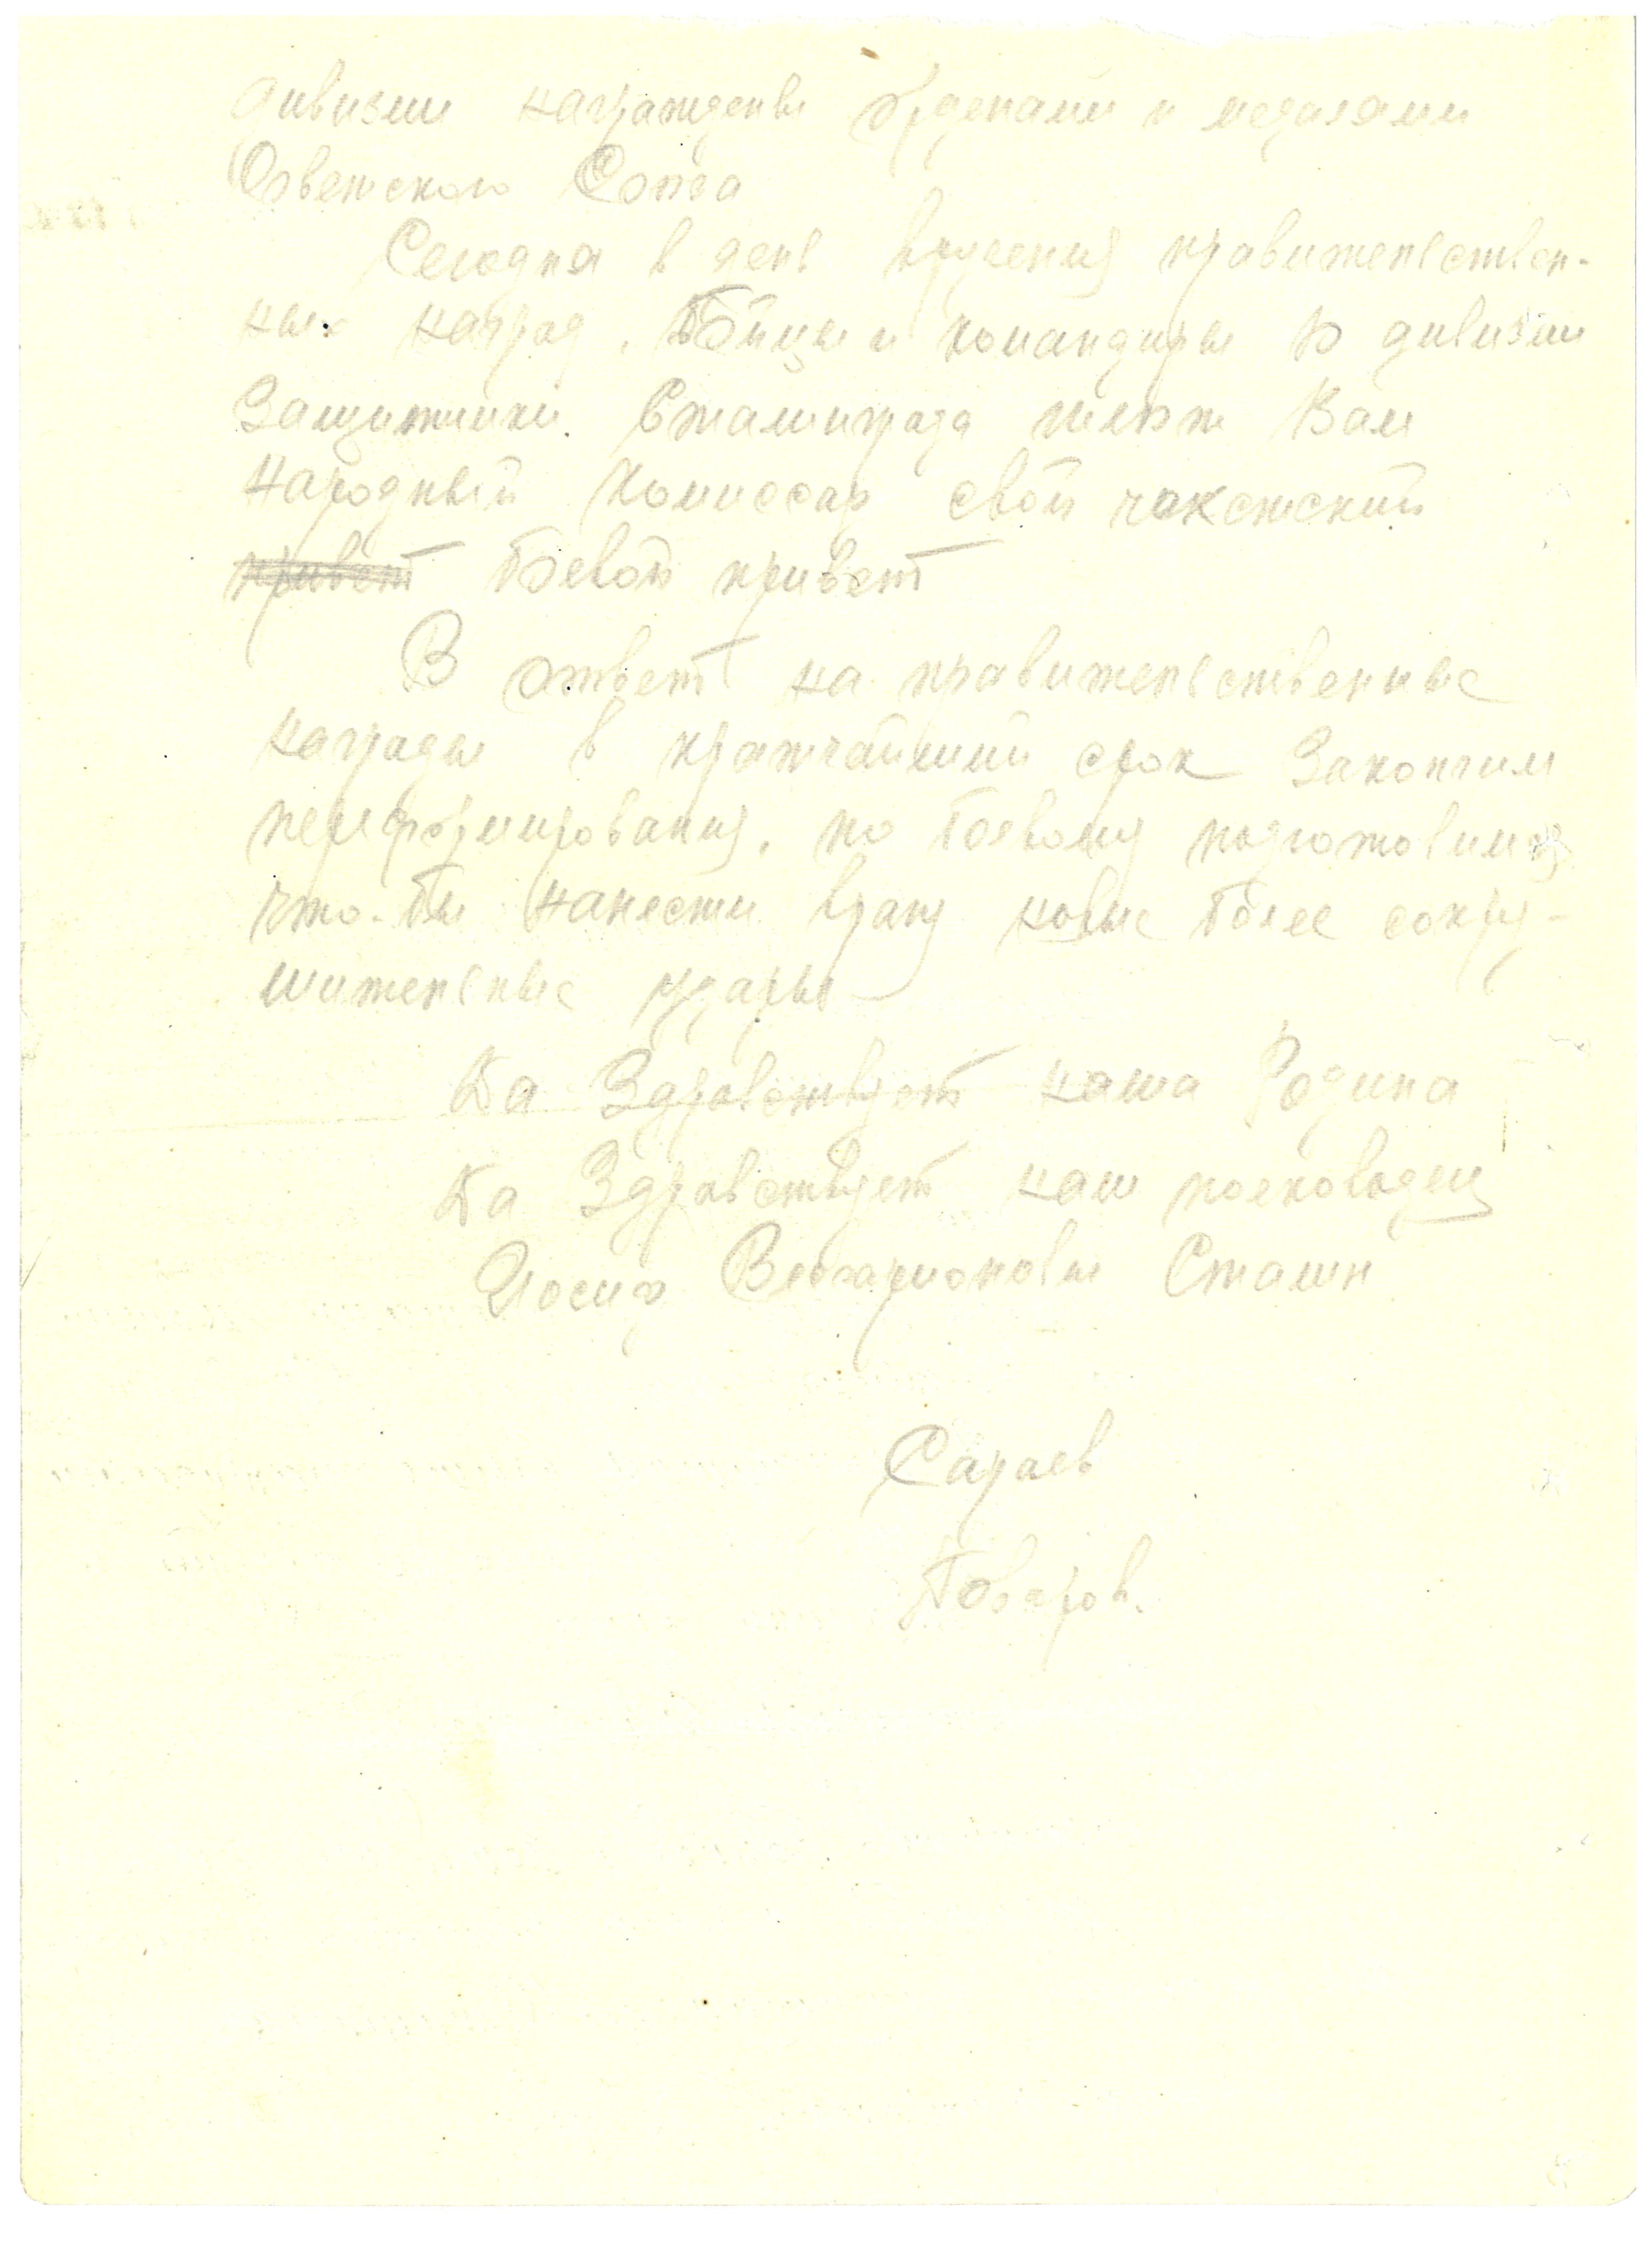 дивизии награждены орденами и медалями
Советского Союза
Сегодня в день вручения правительствен-
ных наград, бойцы и командиры 10 дивизии
Защитники Сталинграда шлют Вам
Народный Комиссар свой чекистский
привет боевой привет
В ответ на правительственные
награды в кратчайший срок закончим
переформирования, по боевому подготовимся
что-бы нанести врагу новые более сокру-
шительные удары
Да Здравствует наша Родина
Да Здравствует наш полководец
Иосиф Виссарионовы Сталин
Сараев
Говоров.